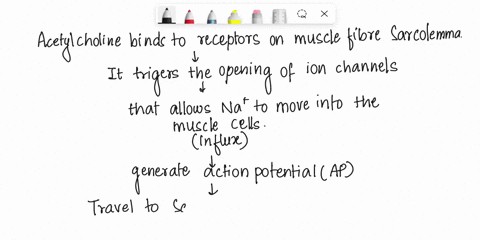 Acetylcholine binds to receptors on muscle fibre Sarcolemma
↓
It trigers the opening of ion channels
↓
that allows Na⁺ to move into the
muscle cells.
(influx)
↓
generate action potential (AP)
↓
Travel to Sc